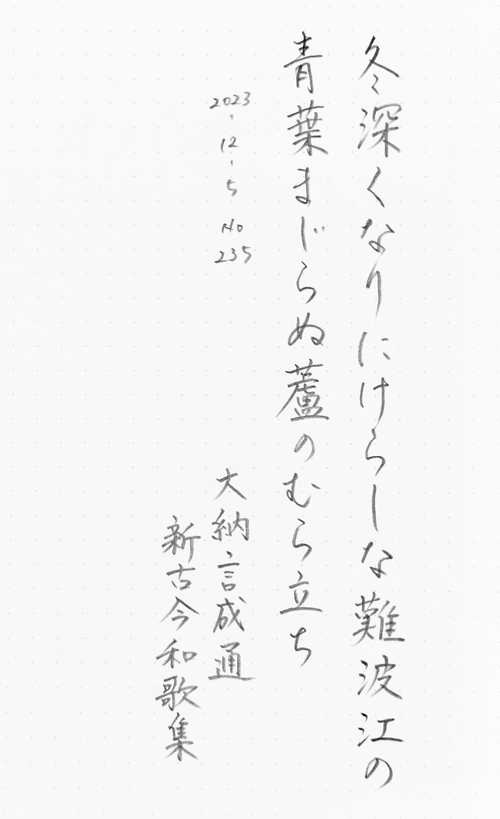 冬深くなりにけらしな難波江の
青葉まじらぬ蘆のむら立ち
2023-12-5 No 235
大納言成通
新古今和歌集